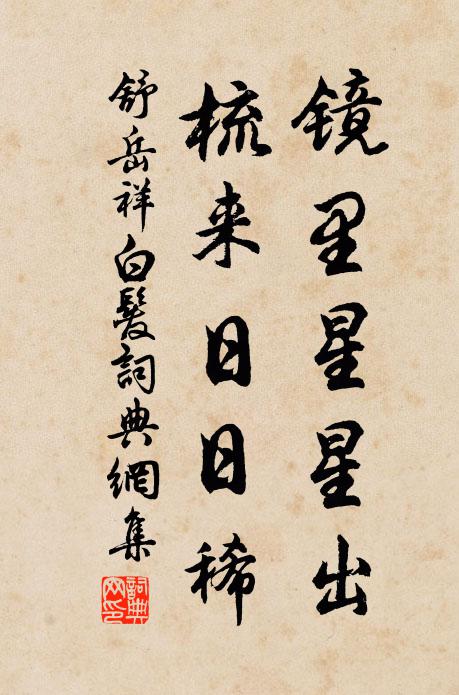 镜里星星出
梳来日日稀
舒岳祥白髮詞典網集
詞典网印